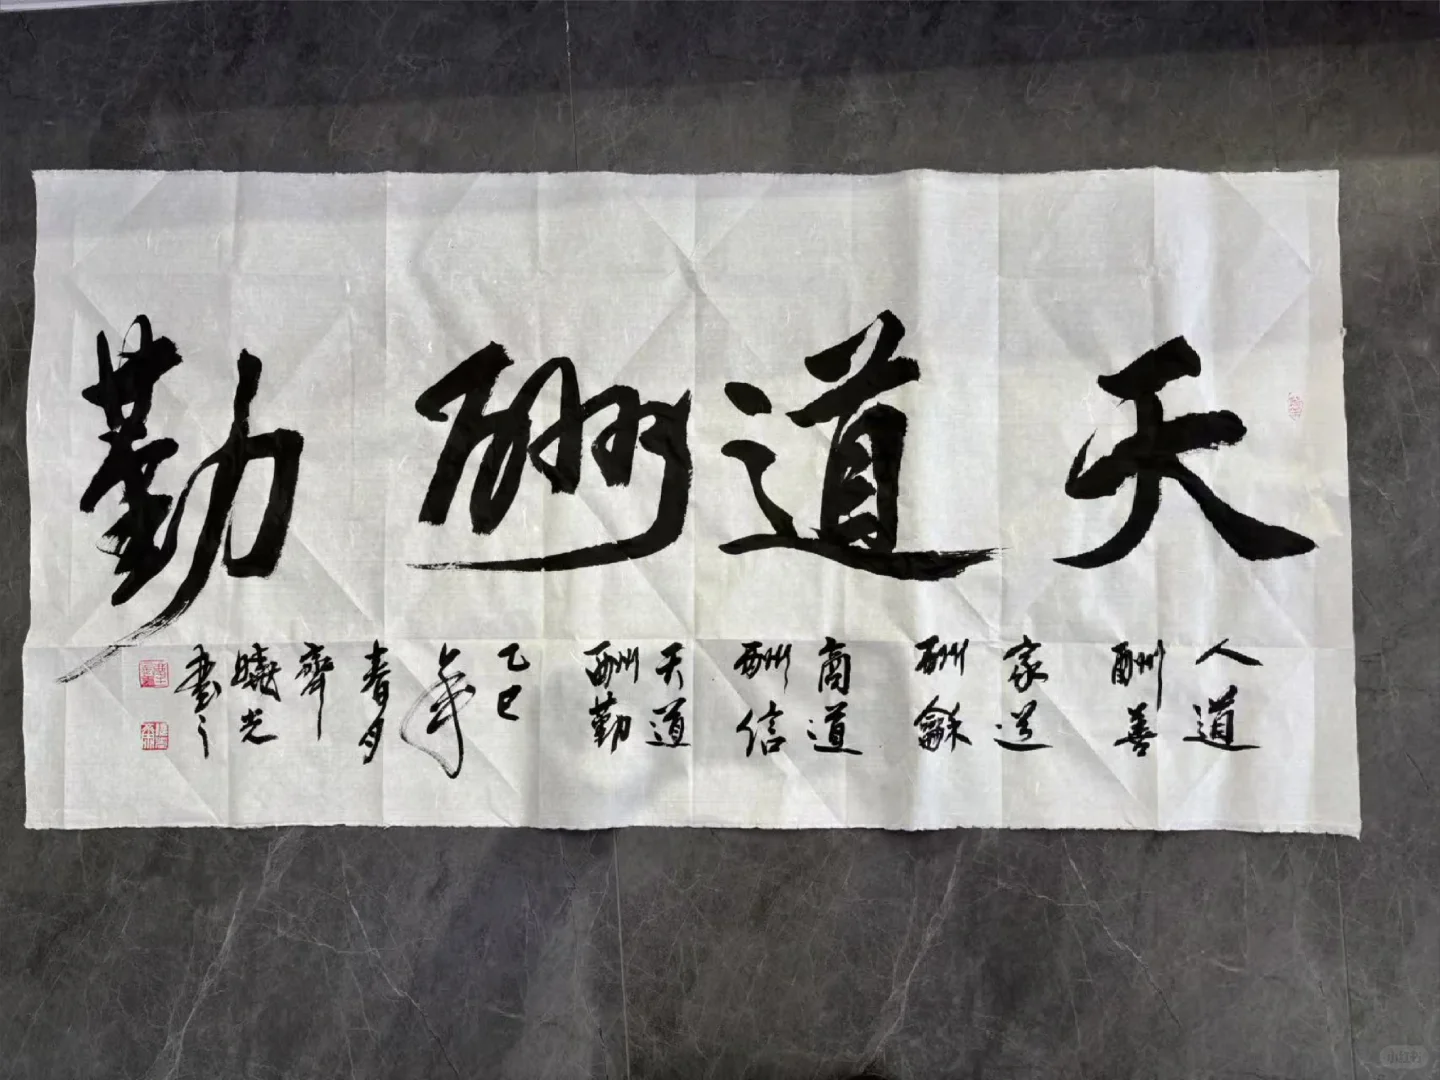 天道酬勤
人道
酬善
家道
酬龢
商道
酬信
天道
酬勤
乙巳
年
春月
齊
曉光
書之